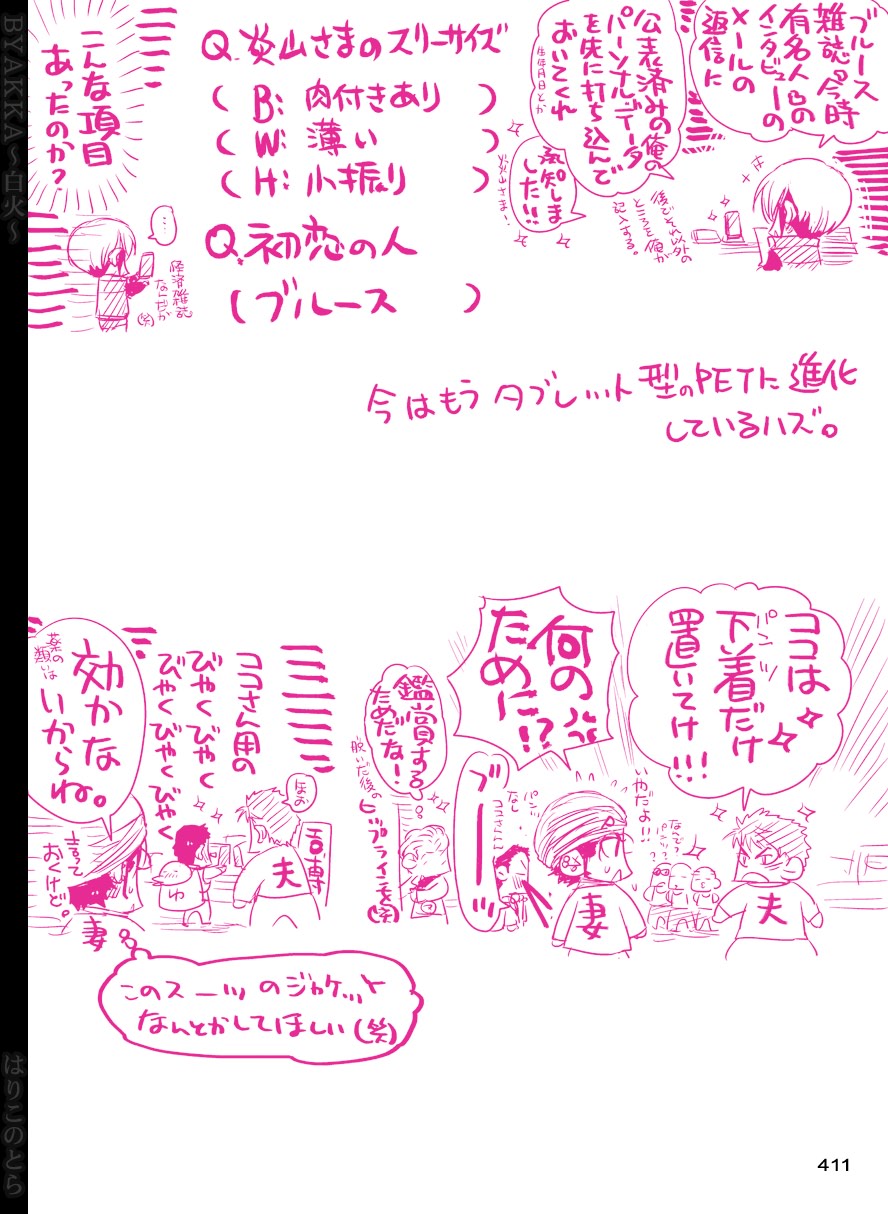 ブルース
雑誌「今時
有名人」の
インタビューの
メールの
返信に
公表済みの俺の
パーソナルデータ
を先に打ち込んで
おいてくれ
生年月日とか
承知しま
した!!
炎山さま…
後でそれ以外の
ところを俺が
記入する。
Q.炎山さまのスリーサイズ
( B: 肉付きあり )
( W: 薄い )
( H: 小振り )
Q.初恋の人
(ブルース )
こんな項目
あったのか?
…
経済雑誌
なんだが
(笑)
今はもうタブレット型のPETに進化
しているハズ。
ココは
下着だけ
パンツ
置いてけ!!!
何の
ために!?
いやだよ!!
なんで?
パンツ?
夫
妻
パンツ
なし
ココさん
ブーッ
鑑賞する
ためだな!
脱いだ後の
(笑)
ココさん用の
びゃくびゃく
びゃくびゃくびゃく
ほお
夫
ゆ
効かな
いからね。
薬の
類いは
言って
おくけど。
妻
このスーツのジャケット
なんとかしてほしい(笑)
BYAKKA～白火～
はりこのとら
411